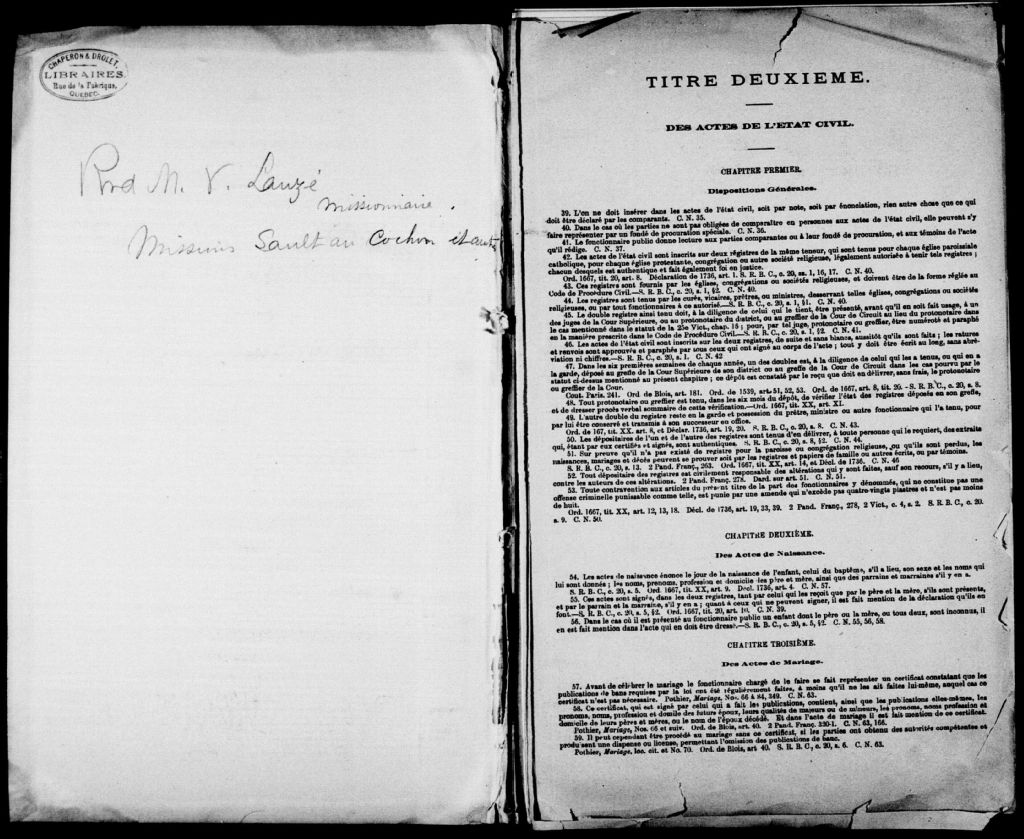 CHAPERON & DROLET,
LIBRAIRES.
Rue de la Fabrique,
QUEBEC.
Rvd M. V. Lauzé
Missionnaire.
Missions Sault au Cochon et autr
TITRE DEUXIEME.
DES ACTES DE L'ETAT CIVIL.
CHAPITRE PREMIER.
Dispositions Générales.
39. L'on ne doit insérer dans les actes de l'état civil, soit par note, soit par énonciation, rien autre chose que ce qui
doit être déclaré par les comparants. C. N. 35.
40. Dans le cas où les parties ne sont pas obligées de comparaître en personnes aux actes de l'état civil, elle peuvent s'y
faire représenter par un fondé de procuration spéciale. C. N. 36.
41. Le fonctionnaire public donne lecture aux parties comparantes ou à leur fondé de procuration, et aux témoins de l'acte
qu'il rédige. C. N. 37.
42. Les actes de l'état civil sont inscrits sur deux registres de la même teneur, qui sont tenus pour chaque église paroissiale
catholique, pour chaque église protestante, congrégation ou autre société religieuse, légalement autorisée à tenir tels registres ;
chacun desquels est authentique et fait également foi en justice.
Ord. 1667, tit. 20, art. 8. Déclaration de 1736, art. 1. S. R. B. C., c. 20, ss. 1, 16, 17. C. N. 40.
43. Ces registres sont fournis par les églises, congrégations ou sociétés religieuses, et doivent être de la forme réglée au
Code de Procédure Civil.—S. R. B. C., c. 20, s. 1, §2. C. N. 40.
44. Les registres sont tenus par les curés, vicaires, prêtres, ou ministres, desservant telles églises, congrégations ou sociétés
religieuses, ou par tout fonctionnaires à ce autorisé.—S. R. B. C., c. 20, s. 1, §1. C. N. 40.
45. Le double registre ainsi tenu doit, à la diligence de celui qui le tient, être présenté, avant qu'il en soit fait usage, à un
des juges de la Cour Supérieure, ou au protonotaire du district, ou au greffier de la Cour de Circuit au lieu du protonotaire dans
le cas mentionné dans le statut de la 25e Vict., chap. 16 ; pour, par tel juge, protonotaire ou greffier, être numéroté et paraphé
en la manière prescrite dans le Code de Procédure Civil.—S. R. B. C., c. 20, s. 1, §2. C. N. 41.
46. Les actes de l'état civil sont inscrits sur les deux registres, de suite et sans blancs, aussitôt qu'ils sont faits ; les ratures
et renvois sont approuvés et paraphés par tous ceux qui ont signé au corps de l'acte ; tout y doit être écrit au long, sans abré-
viation ni chiffres.—S. R. B. C., c. 20, s. 1. C. N. 42
47. Dans les six premières semaines de chaque année, un des doubles est, à la diligence de celui qui les a tenus, ou qui en a
la garde, déposé au greffe de la Cour Supérieure de son district ou au greffe de la Cour de Circuit dans les cas pourvu par le
statut ci-dessus mentionné au présent chapitre ; ce dépôt est constaté par le reçu que doit en délivrer, sans frais, le protonotaire
ou greffier de la Cour.
Cout. Paris. 241. Ord. de Blois, art. 181. Ord. de 1539, art. 51, 52, 53. Ord. de 1667, art. 8, tit. 20.—S. R. B. C., c. 20, s. 8.
48. Tout protonotaire ou greffier est tenu, dans les six mois du dépôt, de vérifier l'état des registres déposés en son greffe,
et de dresser procès verbal sommaire de cette vérification.—Ord. 1667, tit. XX, art. XI.
49. L'autre double du registre reste en la garde et possession du prêtre, ministre ou autre fonctionnaire qui l'a tenu, pour
par lui être conservé et transmis à son successeur en office.
Ord. de 167, tit. XX. art. 8, et Déclar. 1736, art. 19, 20. S. R. B. C., c. 20, s. 8. C. N. 43.
50. Les dépositaires de l'un et de l'autre des registres sont tenus d'en délivrer, à toute personne qui le requiert, des extraits
qui, étant par eux certifiés et signés, sont authentiques. S. R. B. C., c. 20, s. 8, §2. C. N. 44.
51. Sur preuve qu'il n'a pas existé de registre pour la paroisse ou congrégation religieuse, ou qu'ils sont perdus, les
naissances, mariages et décès peuvent se prouver soit par les registres et papiers de famille ou autres écrits, ou par témoins.
S. R. B. C., c. 20, s. 13. 2 Pand. Franç., 263. Ord. 1667, tit. XX, art. 14, et Décl. de 1736. C. N. 46
52. Tout dépositaire des registres est civilement responsable des altérations qui y sont faites, sauf son recours, s'il y a lieu,
contre les auteurs de ces altérations. 2 Pand. Franç. 278. Dard. sur art. 51. C. N. 51.
53. Toute contravention aux articles du présent titre de la part des fonctionnaires y dénommés, qui ne constitue pas une
offense criminelle punissable comme telle, est punie par une amende qui n'excède pas quatre-vingts piastres et n'est pas moins
de huit.
Ord. 1667, tit. XX, art. 12, 13, 18. Décl. de 1736, art. 19, 33, 39. 2 Pand. Franç., 278, 2 Vict., c. 4, s. 2. S. R. B. C., c. 20.
s. 9. C. N. 50.
CHAPITRE DEUXIÈME.
Des Actes de Naissance.
54. Les actes de naissance énonce le jour de la naissance de l'enfant, celui du baptême, s'il a lieu, son sexe et les noms qui
lui sont donnés ; les noms, prenoms, profession et domicile des père et mère, ainsi que des parrains et marraines s'il y en a.
S. R. B. C., c. 20, s. 5. Ord. 1667, tit. XX, art. 9. Décl. 1736, art. 4. C. N. 57.
55. Ces actes sont signés, dans les deux registres, tant par celui qui les reçoit que par le père et la mère, s'ils sont présents,
et par le parrain et la marraine, s'il y en a ; quant à ceux qui ne peuvent signer, il est fait mention de la déclaration qu'ils en
font.—S. R. B. C., c. 20, s. 5, §2. Ord. 1667, tit. 20, art. 10. C. N. 39.
56. Dans le cas où il est présenté au fonctionnaire public un enfant dont le père ou la mère, ou tous deux, sont inconnus, il
en est fait mention dans l'acte qui en doit être dressé.—S. R. B. C., c. 20, s. 5, §2. C. N. 55, 56, 58.
CHAPITRE TROISIÈME.
Des Actes de Mariage.
57. Avant de célébrer le mariage le fonctionnaire chargé de le faire se fait représenter un certificat constatant que les
publications de bans requises par la loi ont été régulièrement faites, à moins qu'il ne les ait faites lui-même, auquel cas ce
certificat n'est pas nécessaire. Pothier, Mariage, Nos. 66 à 84, 349. C. N. 63.
58. Ce certificat, qui est signé par celui qui a fait les publications, contient, ainsi que les publications elles-mêmes, les
pronoms, noms, profession et domile des futurs époux, leurs qualités de majeurs ou de mineurs, les pronoms, noms profession et
domicile de leurs pères et mères, ou le nom de l'époux décédé. Et dans l'acte de mariage il est fait mention de ce certificat.
Pothier, Mariage, Nos. 66 et suiv. Ord. de Blois, art. 40. 2 Pand. Franç. 330-1. C. N. 63, 166.
59. Il peut cependant être procédé au mariage sans ce certificat, si les parties ont obtenu des autorités compétentes et
produisent une dispense ou license, permettant l'omission des publications de banc.
Pothier, Mariage, loc. cit. et No. 70. Ord. de Blois, art 40. S. R. B. C., c. 20, s. 6. C. N. 63.